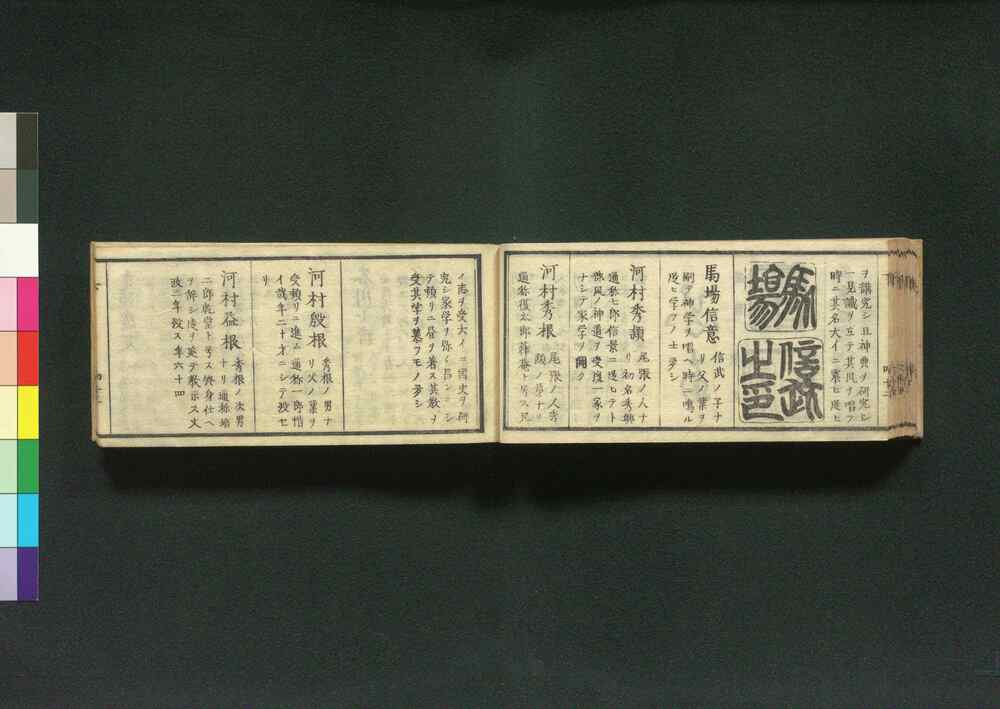 ヲ講究シ且神典ヲ研究シ
一見識ヲ立テ其風ヲ唱フ
時ニ其名大イニ震ヒ從ヒ
馬場
信武
馬場信意
信武ノ子ナ
リ父ノ業ヲ
嗣テ神学ヲ唱ヘ時ニ鳴ル
從ヒ学フノ士多シ
河村秀頴
尾張ノ人ナ
リ初名秀興
通称七郎信景ニ從ヒテト
部風ノ神道ヲ受復一家ヲ
ナシテ家学ヲ開ク
河村秀根
尾張ノ人秀
頴ノ弟ナリ
通称復太郎葎庵ト号ス兄
イ志ヲ受大イニ國史ヲ研
究シ家学ヲ弥昌ンニシ
テ頻リニ書ヲ著ス其教ヲ
受其学ヲ慕フモノ多シ
河村殷根
秀根ノ男ナ
リ父ノ業ヲ
受頻リニ進ム通称一郎惜
イ哉年二十才ニシテ歿セ
リ
河村益根
秀根ノ次男
ナリ通称培
二郎乾堂ト号ス終身仕ヘ
ヲ辞シ テ教示ス文
政二年歿ス年六十四